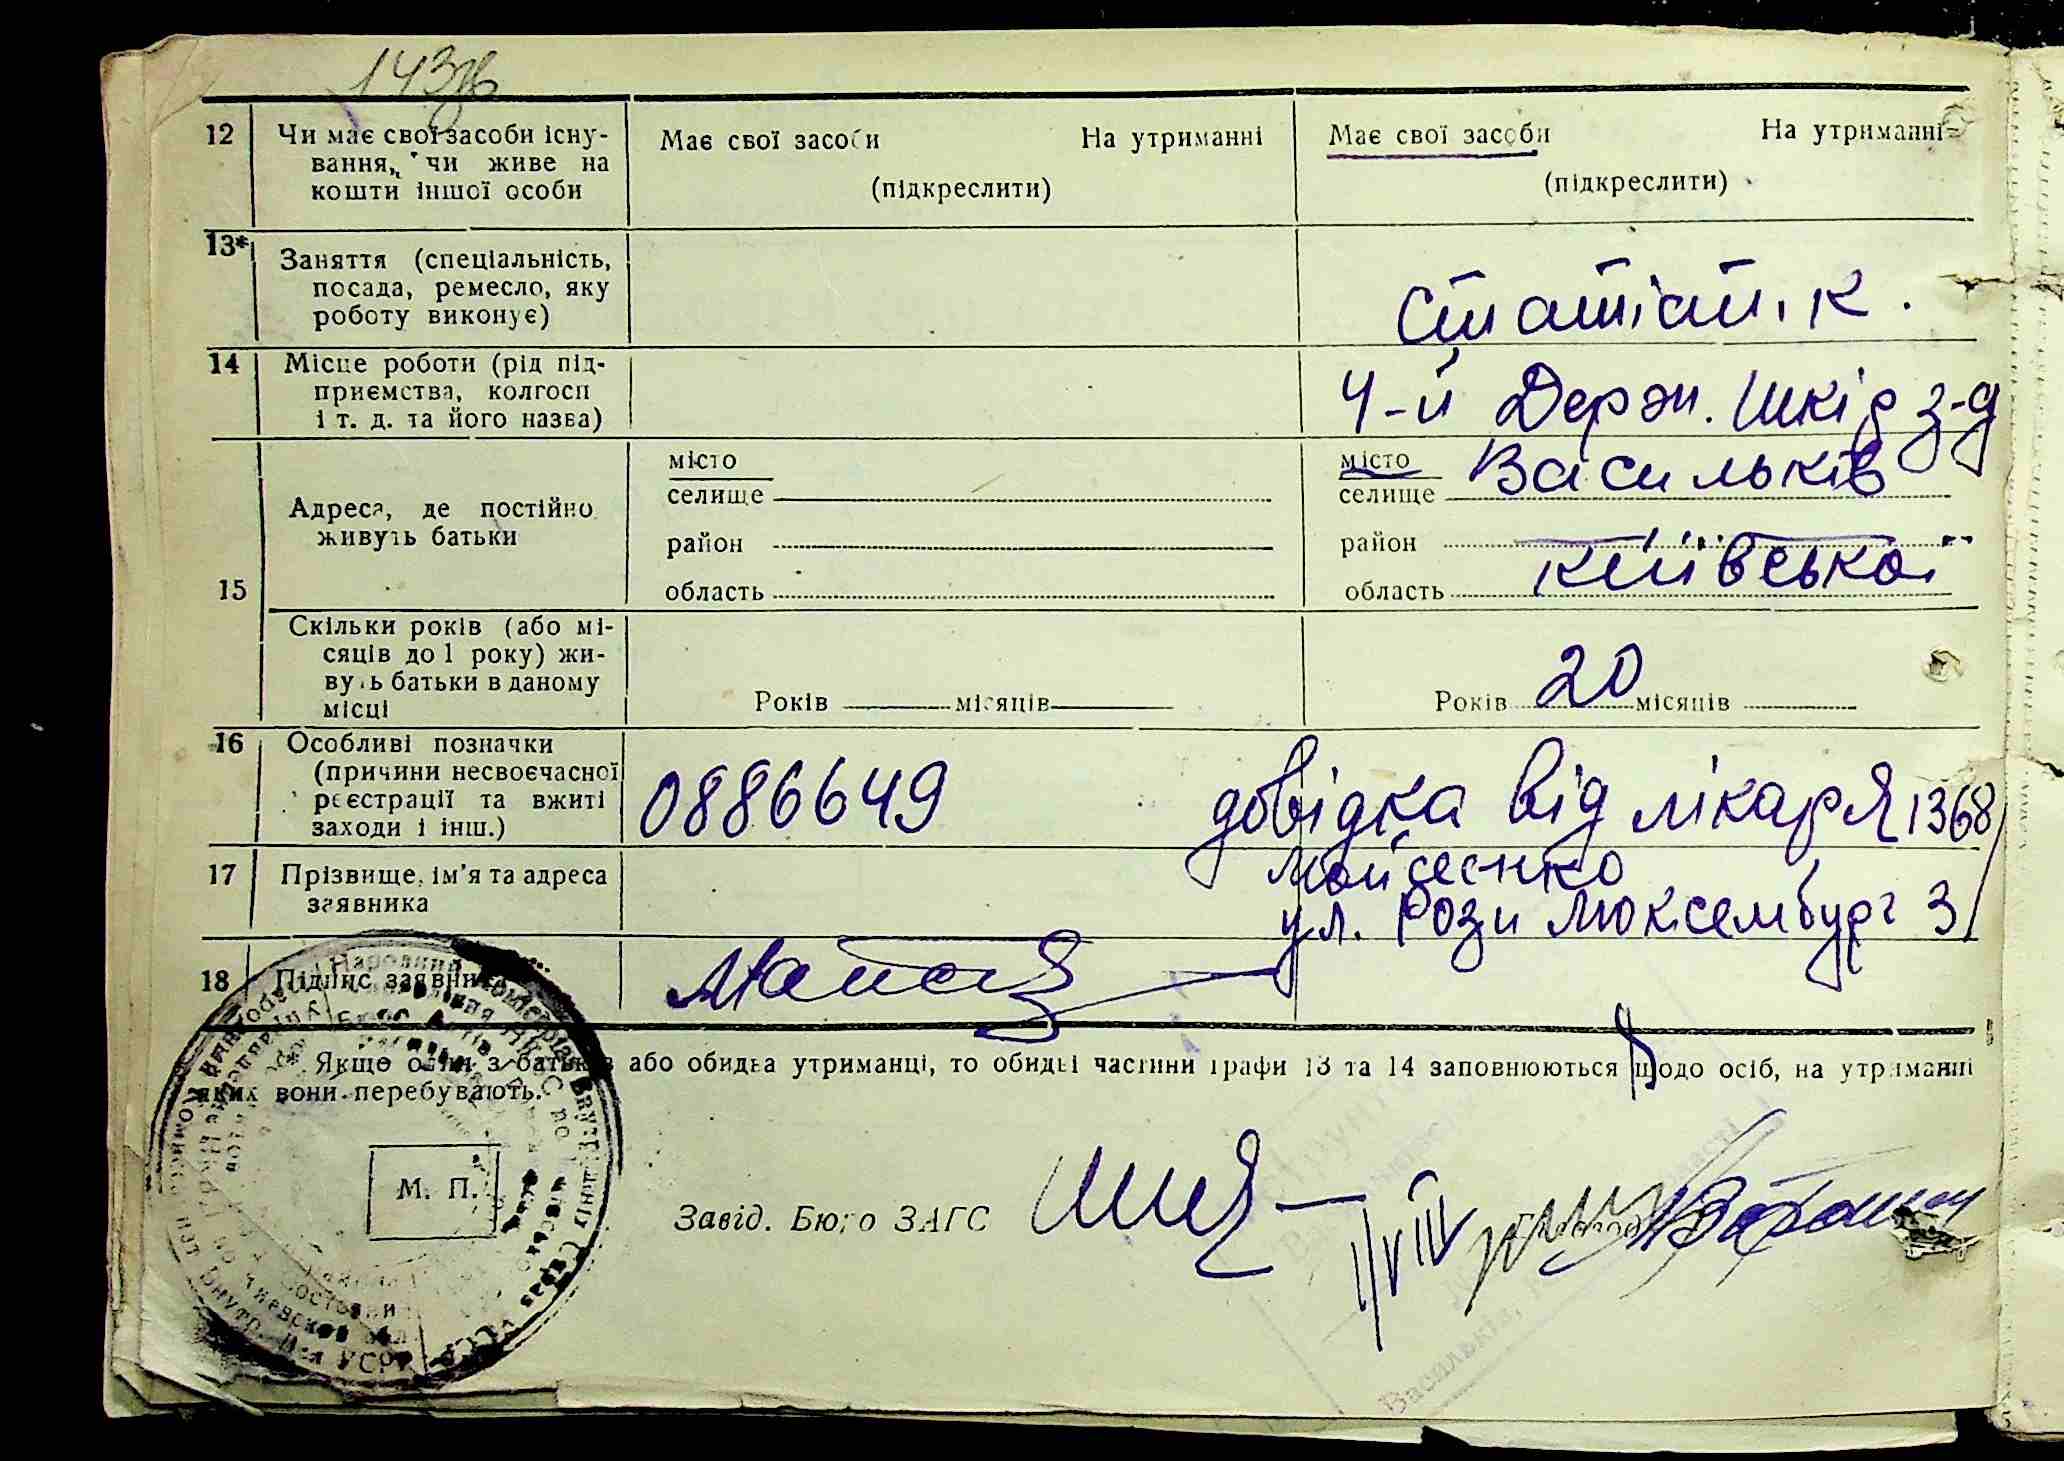 143
12 Чи має свої засоби існу-
вання, чи живе на
кошти іншої особи
Має свої засоби На утриманні
(підкреслити)
Має свої засоби На утриманні
(підкреслити)
13* Заняття (спеціальність,
посада, ремесло, яку
роботу виконує)
Статістик.
14 Місце роботи (рід під-
приємства, колгосп
і т. д. та його назва)
4-й Держ. Шкір з-д
15
Адреса, де постійно
живуть батьки
місто
селище
район
область
місто Васильків
селище
район
область Київської
Скільки років (або мі-
сяців до 1 року) жи-
вуть батьки в даному
місці
Років місяців
Років 20 місяців
16 Особливі позначки
(причини несвоєчасної
реєстрації та вжиті
заходи і інш.)
0886649 довідка від лікаря 1368
17 Прізвище, ім'я та адреса
заявника
Мойсеєнко
ул. Рози Люксембург 3
18 Підпис заявника
* Якщо один з батьків або обидва утриманці, то обидві частини графи 13 та 14 заповнюються щодо осіб, на утриманні
яких вони перебувають.
М. П.
Завід. Бюро ЗАГС